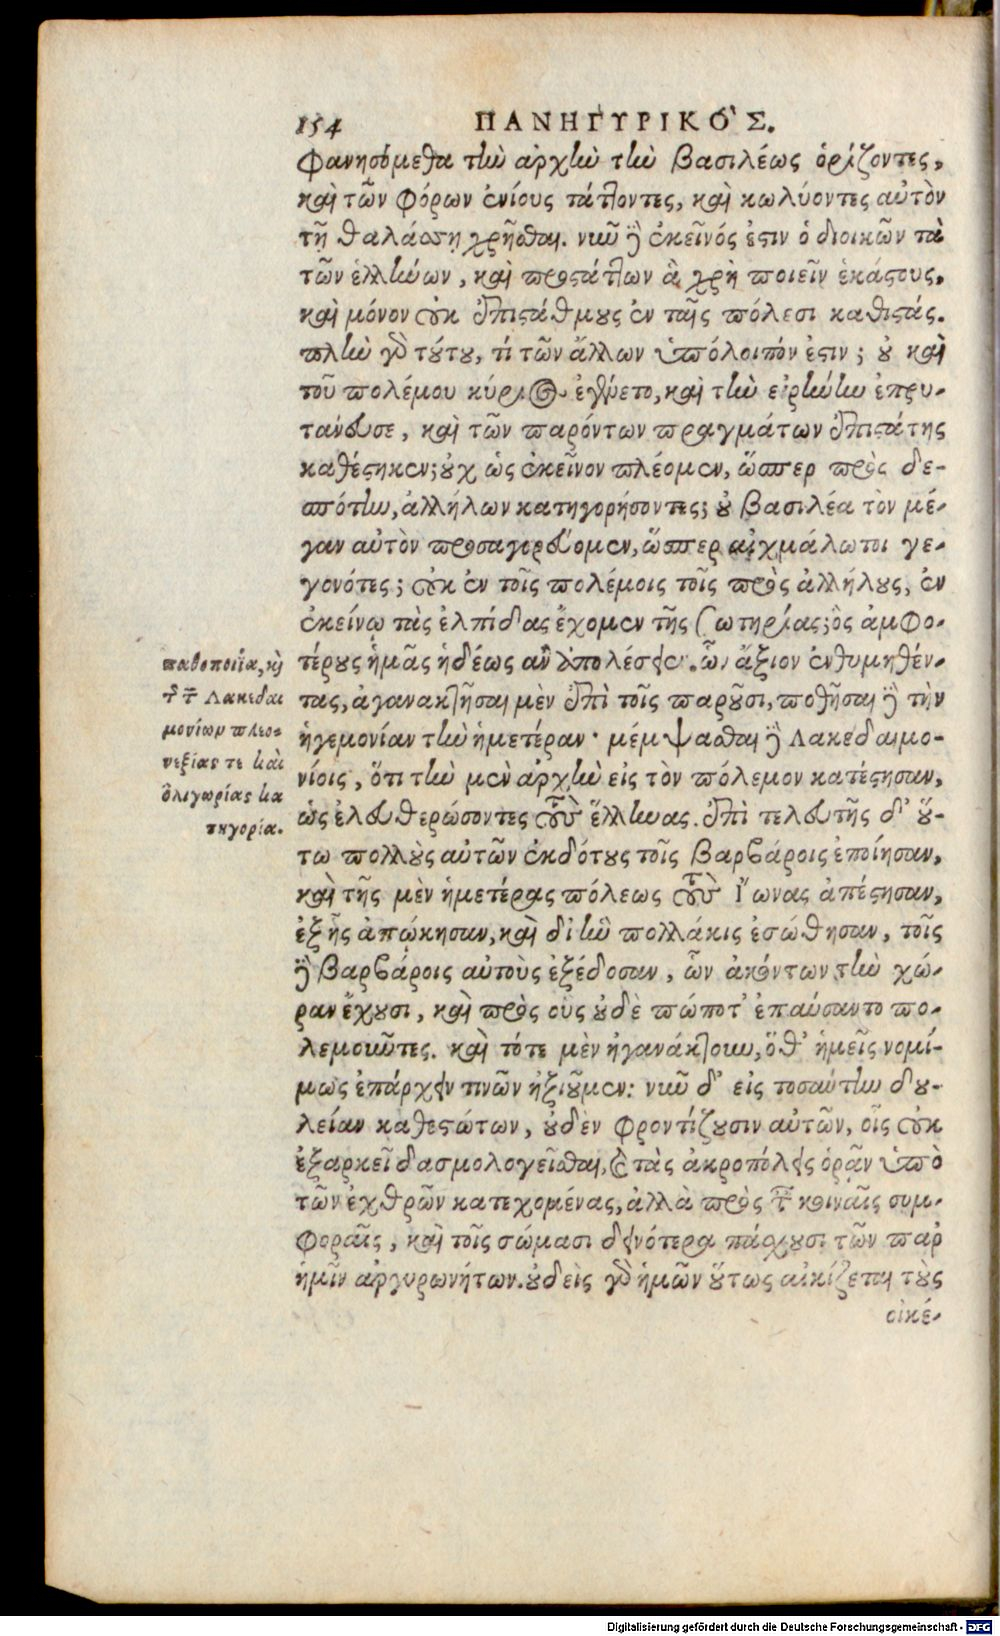 154 ΠΑΝΗΓΥΡΙΚΟ'Σ.
φανησόμεθα τὴν ἀρχὴν τὴν βασιλέως ὁρίζοντες,
καὶ τῶν φόρων ἐνίους τάττοντες, καὶ κωλύοντες αὐτὸν
τῇ θαλάσσῃ χρῆσθαι. νῦν δὲ ἐκεῖνός ἐστιν ὁ διοικῶν τὰ
τῶν ἑλλήνων, καὶ προστάττων ἃ χρὴ ποιεῖν ἑκάστους.
καὶ μόνον οὐκ ἐπιστάθμους ἐν ταῖς πόλεσι καθιστάς.
πλὴν γὸ τούτου, τί τῶν ἄλλων ὑπόλοιπόν ἐστιν; οὐ καὶ
τοῦ πολέμου κύριος ἐγένετο, καὶ τὴν εἰρήνην ἐπρυ-
τάνευσε, καὶ τῶν παρόντων πραγμάτων ἐπιστάτης
καθέστηκεν; οὐχ ὡς ἐκεῖνον πλέομεν, ὥσπερ πρὸς δε-
σπότην, ἀλλήλων κατηγορήσοντες; οὐ βασιλέα τὸν μέ-
γαν αὐτὸν προσαγορεύομεν, ὥσπερ αἰχμάλωτοι γε-
γονότες; οὐκ ἐν τοῖς πολέμοις τοῖς πρὸς ἀλλήλους, ἐν
ἐκείνῳ τὰς ἐλπίδας ἔχομεν τῆς σωτηρίας; ὃς ἀμφο-
παθοποιΐα, καὶ
τῆς τῶν Λακεδαι
μονίων πλεο-
νεξίας τε καὶ
ὀλιγωρίας κα
τηγορία.
τέρους ἡμᾶς ἡδέως ἂν ἀπολέσειεν. ὧν ἄξιον ἐνθυμηθέν-
τας, ἀγανακτῆσαι μὲν ἐπὶ τοῖς παροῦσι, ποθῆσαι δὲ τὴν
ἡγεμονίαν τὴν ἡμετέραν· μέμψασθαι δὲ Λακεδαιμο-
νίοις, ὅτι τὴν μὲν ἀρχὴν εἰς τὸν πόλεμον κατέστησαν,
ὡς ἐλευθερώσοντες τοὺς ἕλληνας. ἐπὶ τελευτῆς δ' οὕ-
τω πολλοὺς αὐτῶν ἐκδότους τοῖς βαρβάροις ἐποίησαν,
καὶ τῆς μὲν ἡμετέρας πόλεως τοὺς Ἴωνας ἀπέστησαν,
ἐξ ἧς ἀπῴκησαν, καὶ δι' ἣν πολλάκις ἐσώθησαν, τοῖς
δὲ βαρβάροις αὐτοὺς ἐξέδοσαν, ὧν ἀκόντων τὴν χώ-
ραν ἔχουσι, καὶ πρὸς οὓς οὐδὲ πώποτ' ἐπαύσαντο πο-
λεμοῦντες. καὶ τότε μὲν ἠγανάκτουν, ὅθ' ἡμεῖς νομί-
μως ἐπάρχειν τινῶν ἠξιοῦμεν: νῦν δ' εἰς τοσαύτην δου-
λείαν καθεστώτων, οὐδὲν φροντίζουσιν αὐτῶν, οἷς οὐκ
ἐξαρκεῖ δασμολογεῖσθαι, καὶ τὰς ἀκροπόλεις ὁρᾷν ὑπὸ
τῶν ἐχθρῶν κατεχομένας, ἀλλὰ πρὸς ταῖς κοιναῖς συμ-
φοραῖς, καὶ τοῖς σώμασι δεινότερα πάσχουσι τῶν παρ
ἡμῖν ἀργυρωνήτων. οὐδεὶς γὸ ἡμῶν οὕτως αἰκίζεται τοὺς
οἰκέ-
Digitalisierung gefördert durch die Deutsche Forschungsgemeinschaft - DFG